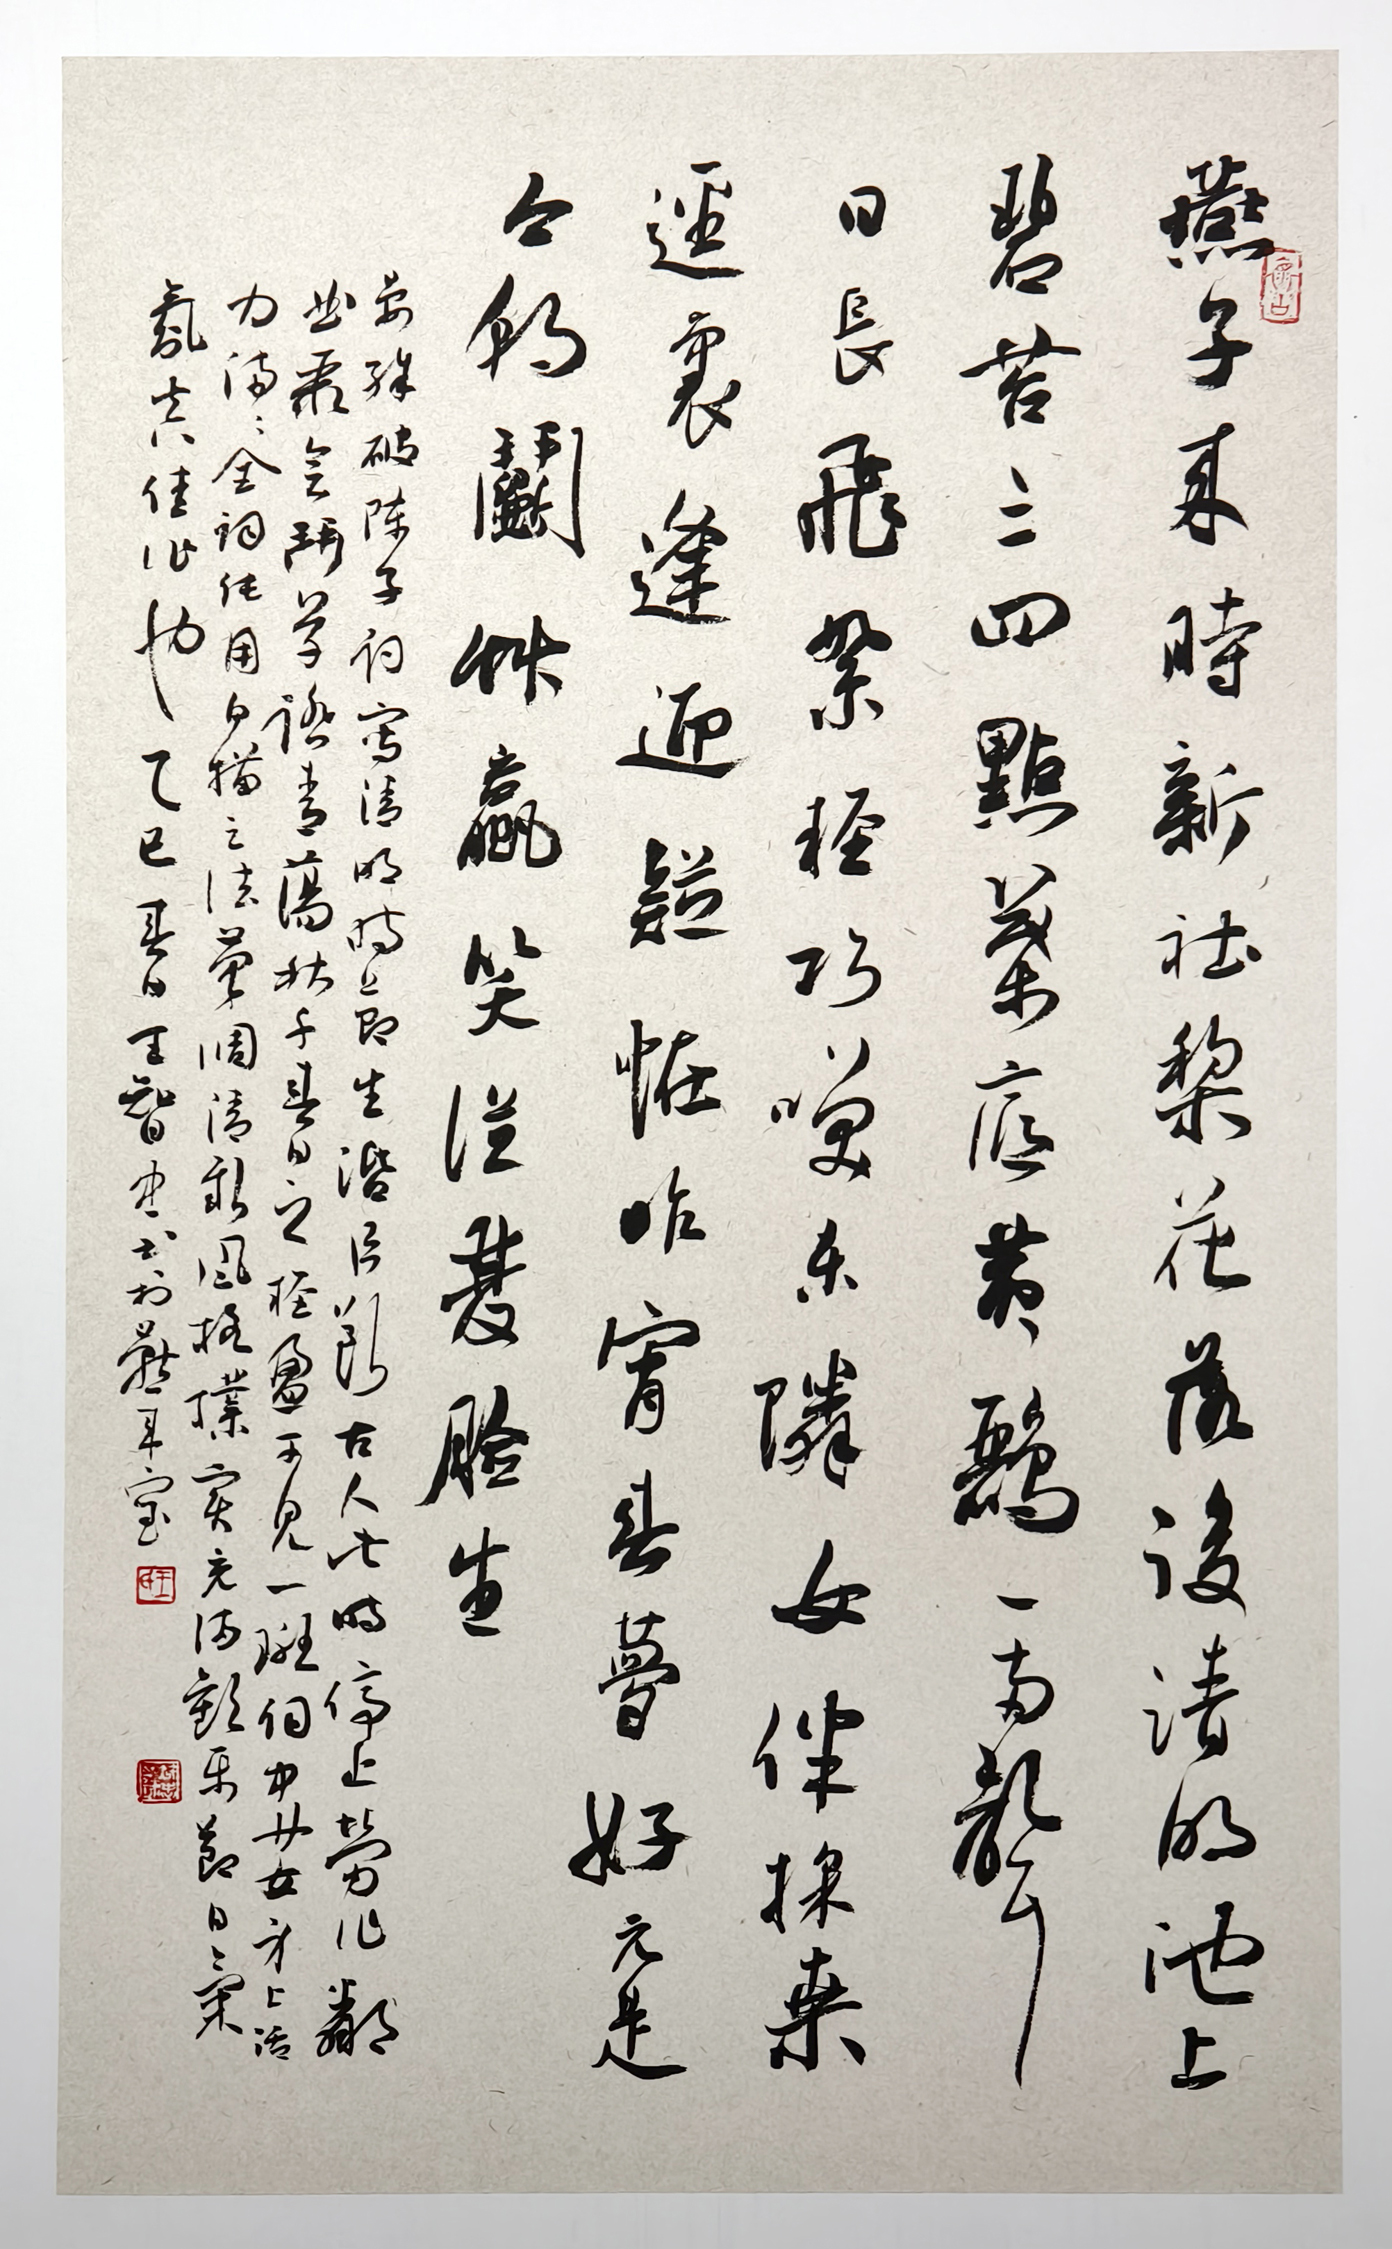 燕子來時新社棃花落後清明池上
碧苔三四點葉底黄鸝一兩聲
日長飛絮輕巧笑東隣女伴採桒
逕裏逢迎疑怪昨宵春夢好元是
今朝鬪草贏笑從雙臉生
晏殊破陣子詞寫清明時節生活片斷古人此時停止勞作鄰
里聚會鬥草踏青蕩秋千春日之輕盈可見一斑詞中少女身上活
力滿滿全詞使用白描之法筆調清新風格樸實充滿歡樂節日氣
氛真佳作也乙巳春日王智忠書於